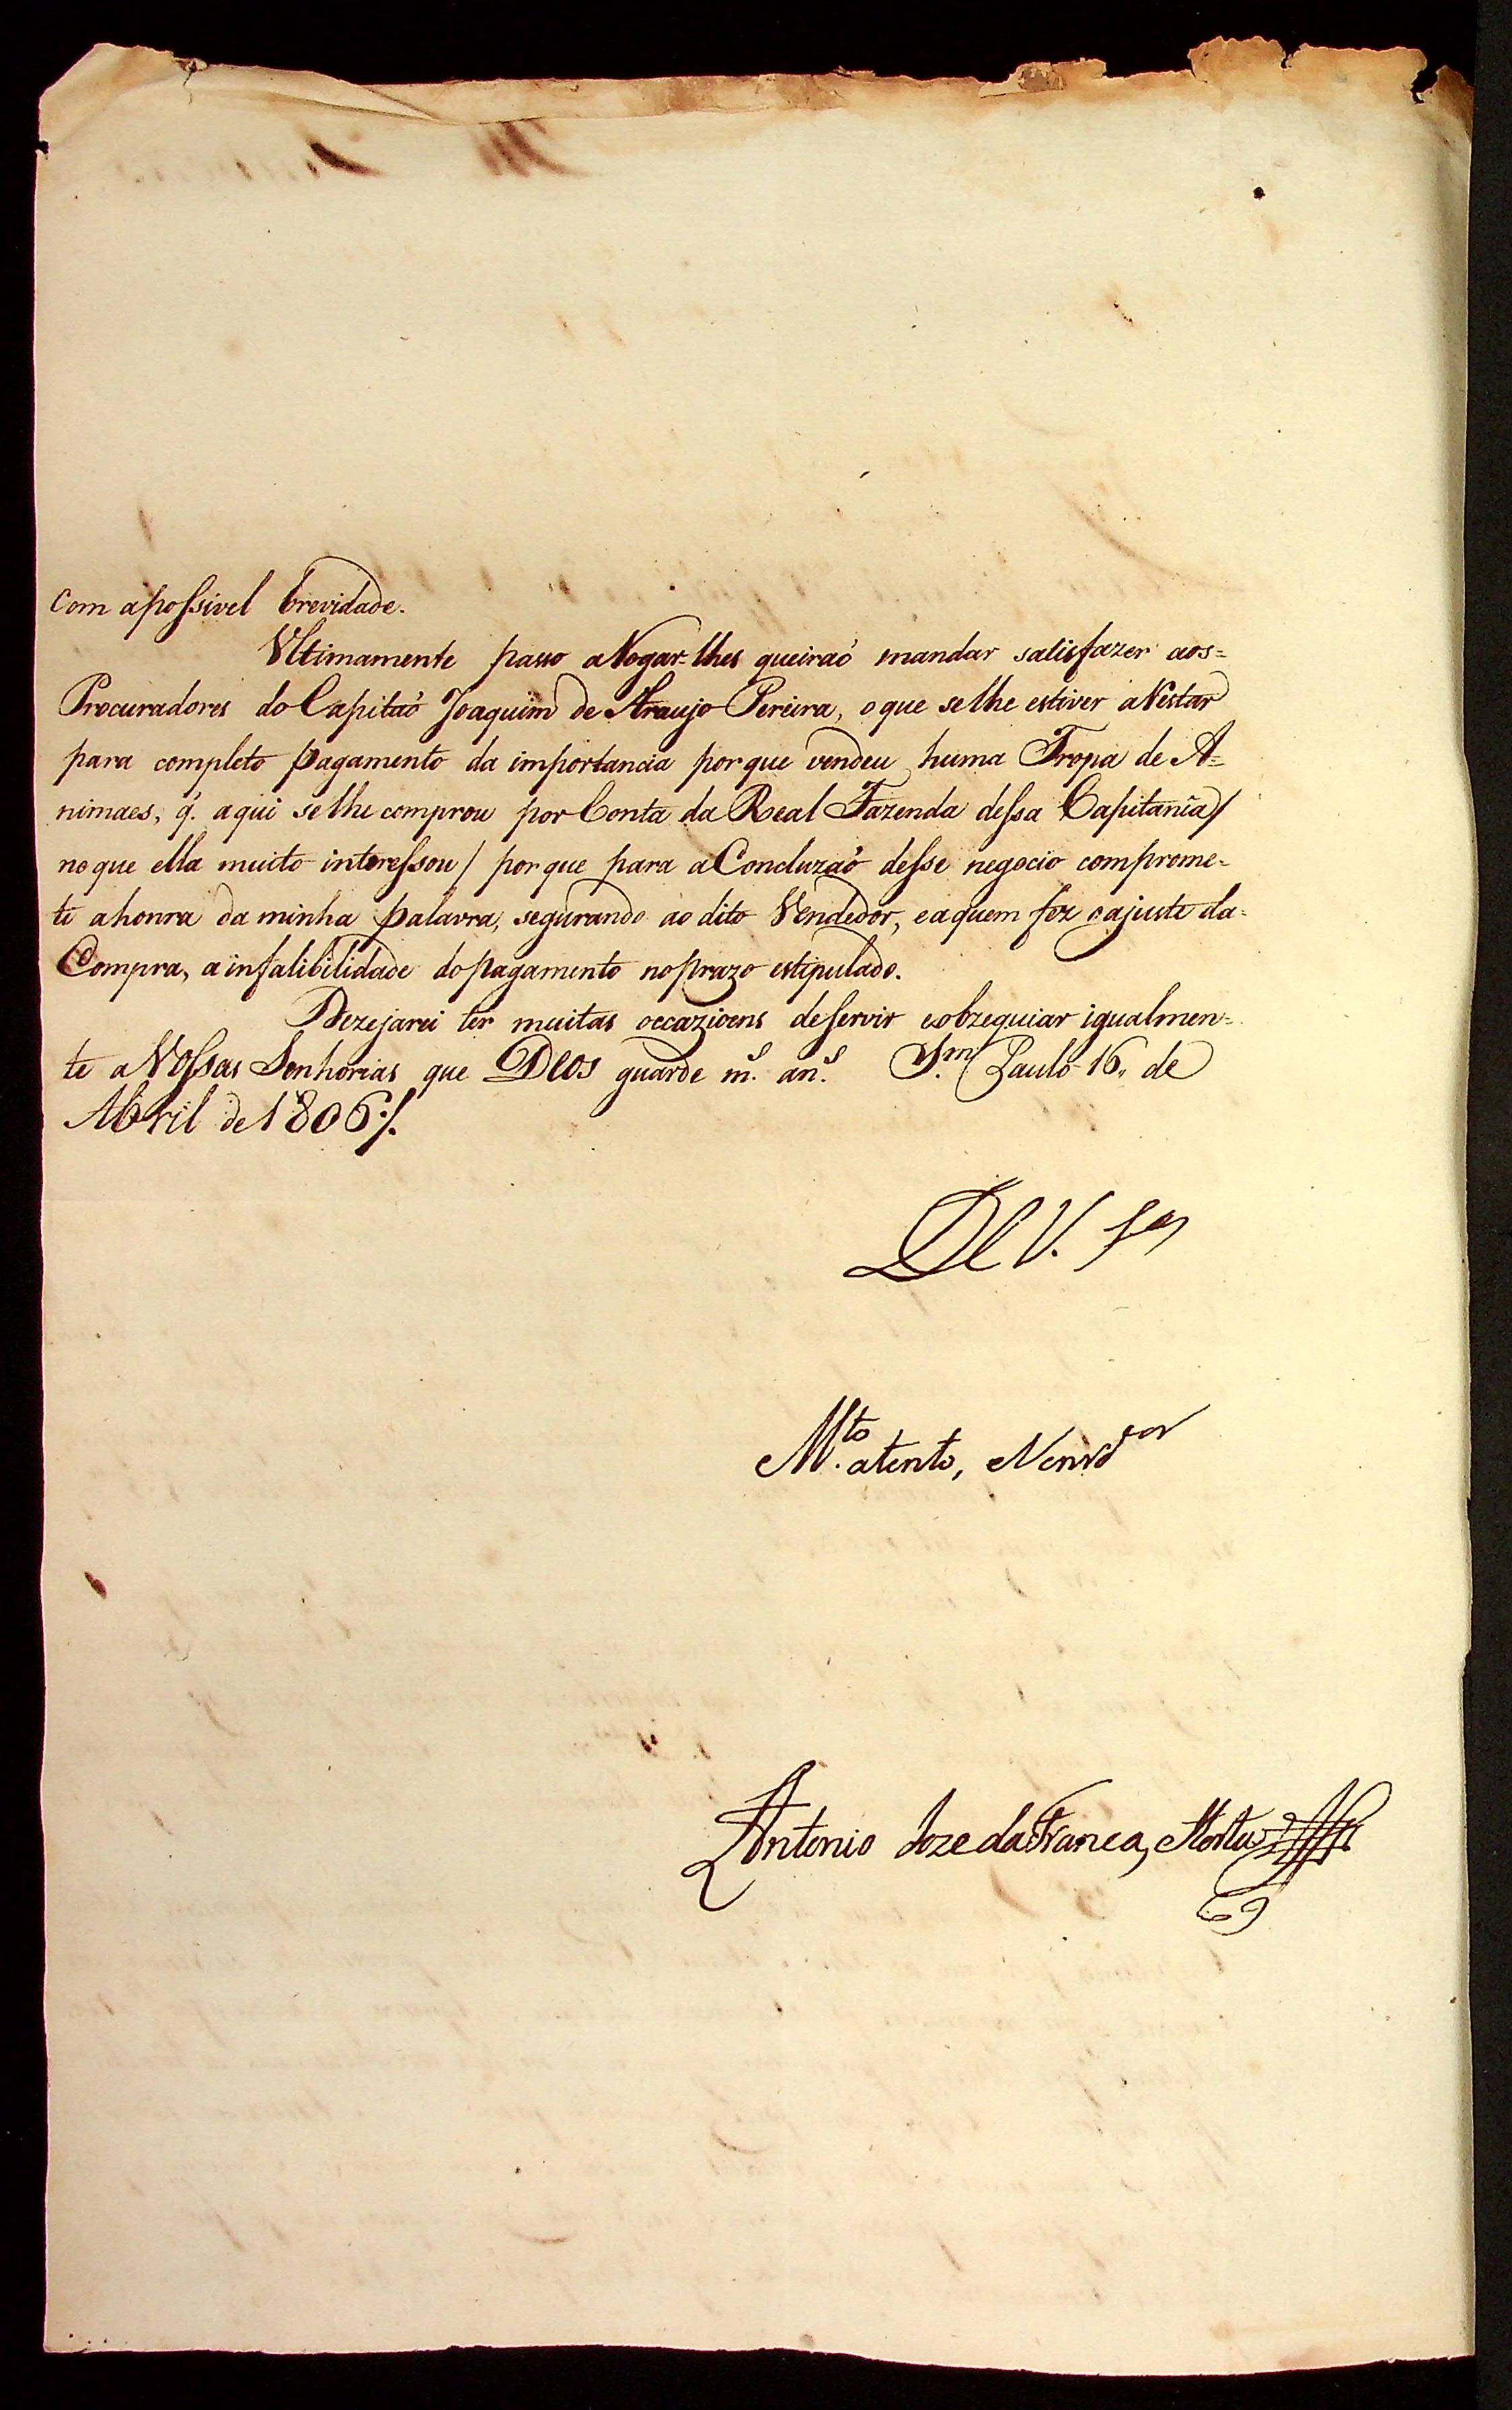 com apossivel brevidade.
Ultimamente passo aRogar=lhes queiraõ mandar satisfazer aos=
Procuradores do Capitaõ Joaquim de Araujo Pereira, oque selhe estiver aRestar
para completo pagamento da importancia porque vendeu huma Tropa de A=
nimaes, q̃. aqui selhe comprou por Conta da Real Fazenda dessa Capitania/
noque ella muito interessou/ porque para aConcluzaõ desse negocio comprome-
ti ahonra da minha palavra, segurando ao dito Vendedor, eaquem fez oajuste da=
Compra, ainfalibilidade dopagamento noprazo estipulado.
Dezejarei ter muitas occazioens deservir eobzequiar igualmen=
te aVossas Senhorias que Deos guarde m.s an.s S.m Paulo 16, de
Abril de 1806/.
De V. S.as
M.to atento, eVen.dor
Antonio Joze da Franca, e Horta